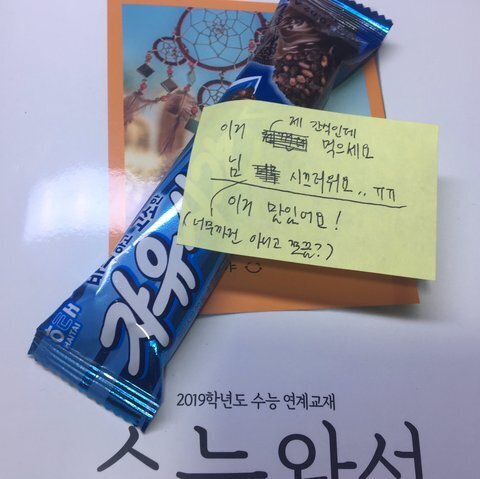 제 간식인데
이거 먹으세요
님 시끄러워요.. ㅠㅠ
이거 맛있어요!
(너무까진 아니고 쪼끔?)
자유시
해태
HAITAI
2019학년도 수능 연계교재
수능완성